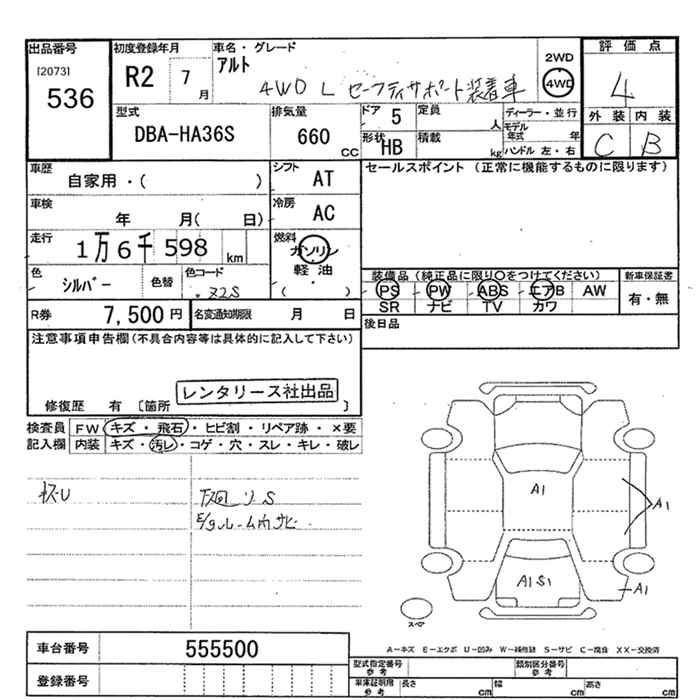 出品番号
[2073]
536
初度登録年月
R2 7 月
車名・グレード
アルト
4WD L セーフティサポート装着車
2WD
4WD
評価点
4
外装 内装
C B
型式
DBA-HA36S
排気量
660 cc
ドア 5
定員 人
形状 HB
積載 kg
ディーラー・並行
モデル年式 年
ハンドル 左・右
車歴
自家用・( )
シフト AT
車検
年 月( 日)
冷房 AC
走行
1万6千598 km
燃料
ガソリン
軽油
( ・ )
色 シルバー
色替
色コード
Z2S
セールスポイント (正常に機能するものに限ります)
装備品 (純正品に限り○をつけてください)
PS PW ABS エアB AW
SR ナビ TV カワ
新車保証書
有・無
R券 7,500円
名変通知期限 月 日
後日品
注意事項申告欄(不具合内容等は具体的に記入して下さい)
レンタリース社出品
修復歴 有 [箇所 ]
検査員 記入欄
FW キズ・飛石・ヒビ割・リペア跡・×要
内装 キズ・汚レ・コゲ・穴・スレ・キレ・破レ
下廻りS
E/gルーム内サビ
A1
A1
A1S1
A1
スペア
A-キズ E-エクボ U-凹み W-補修跡 S-サビ C-腐食 XX-交換済
車台番号 555500
登録番号
型式指定番号 参考
類別区分番号 参考
車庫証明用 参考
長さ cm 幅 cm 高さ cm